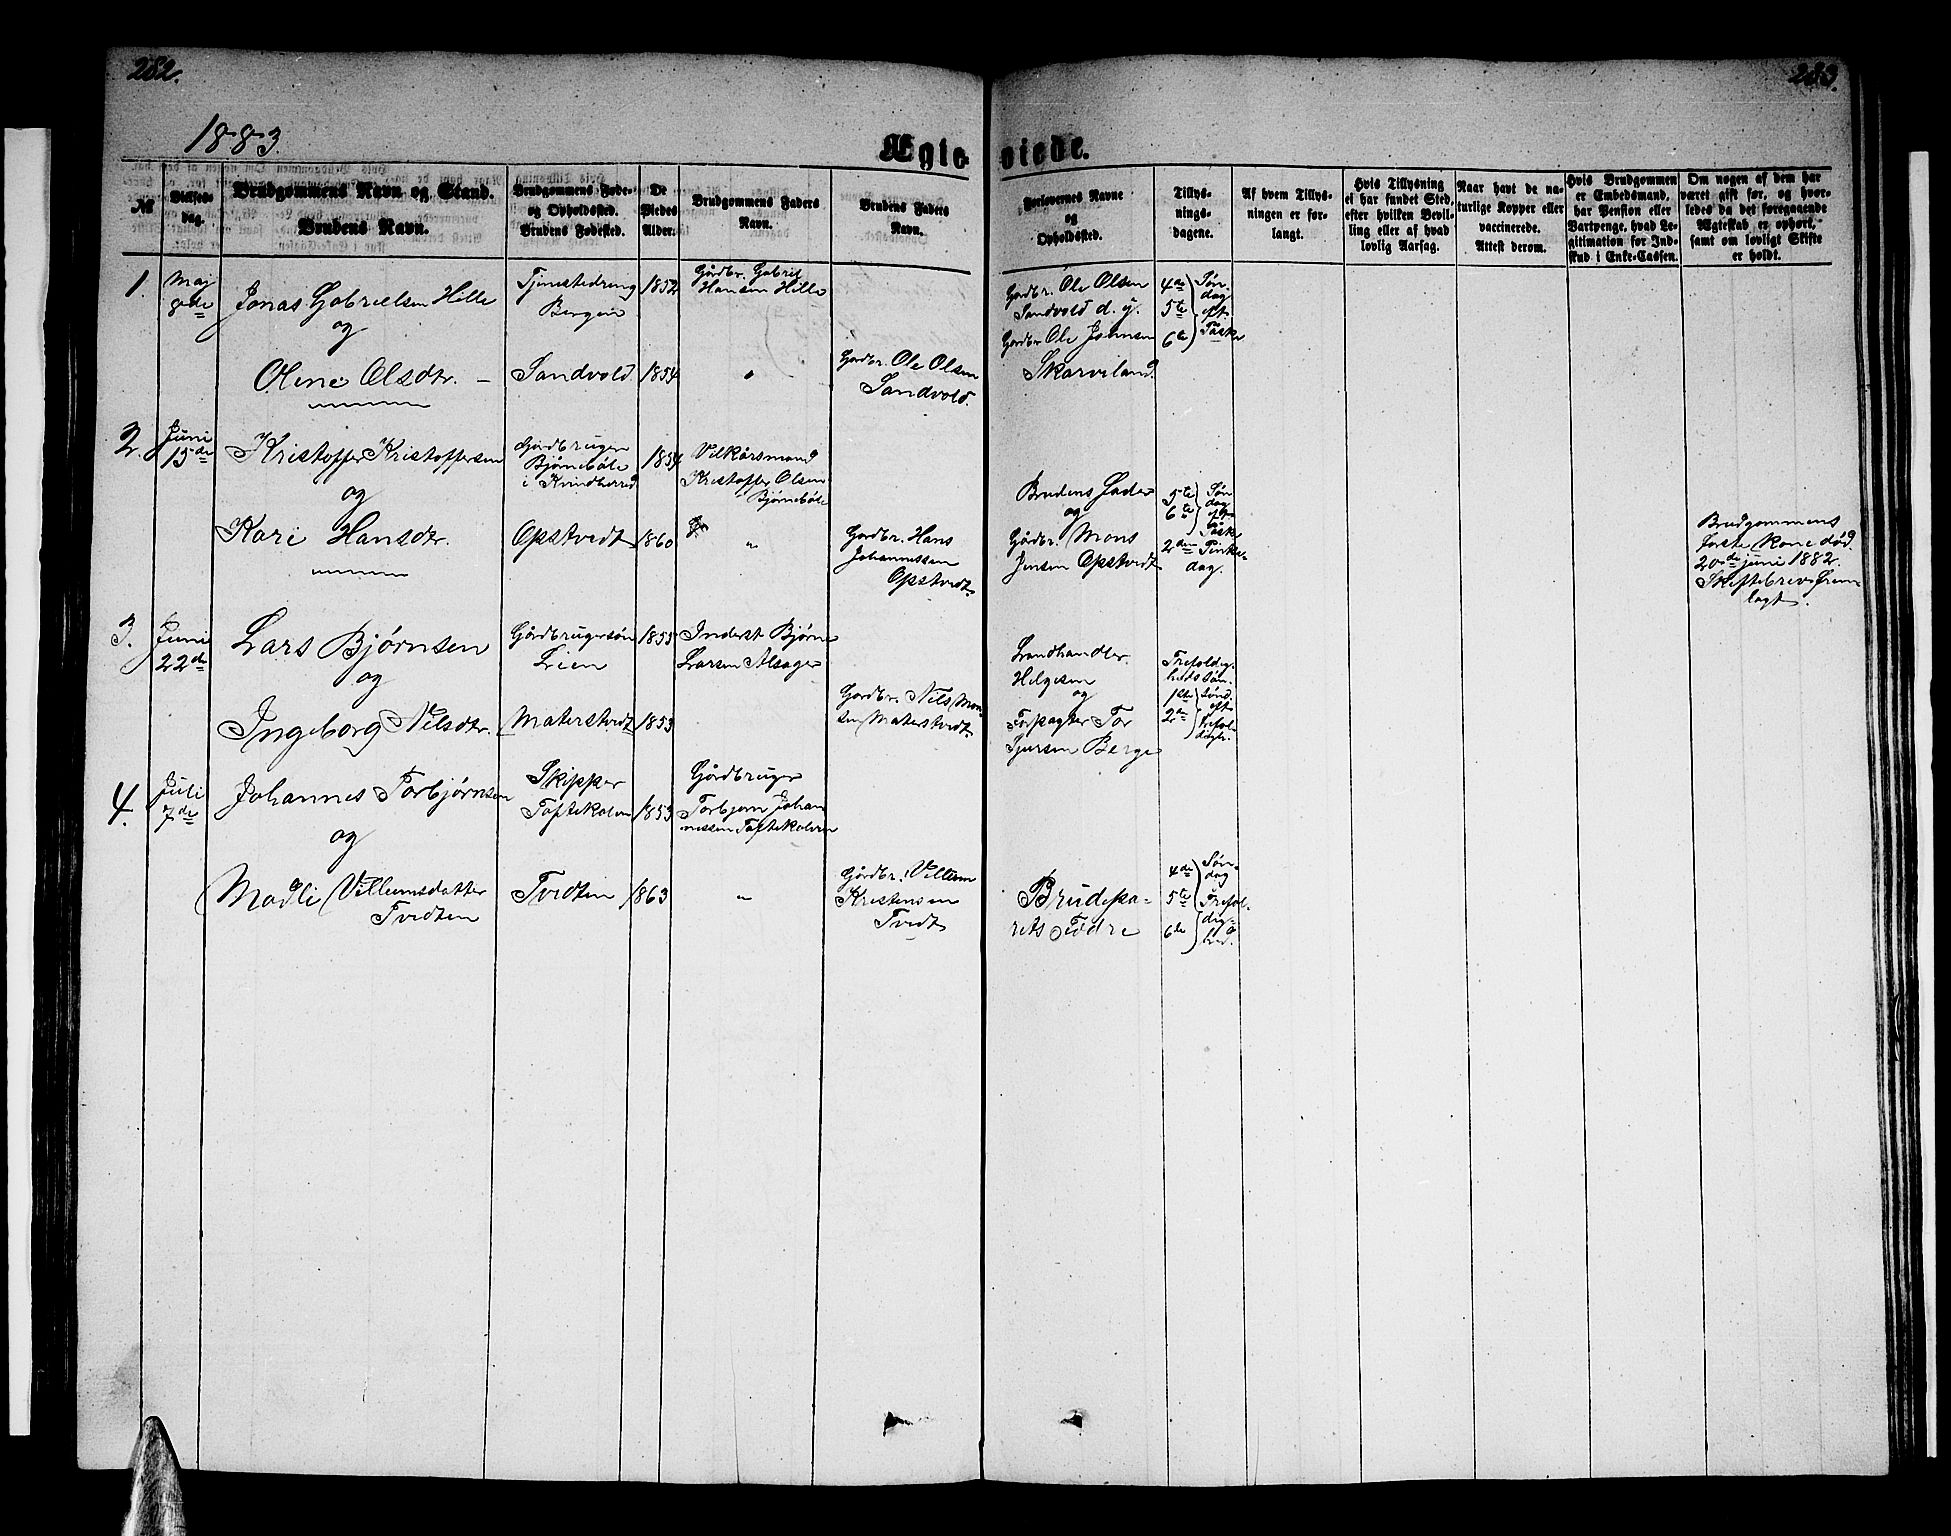 282.
283.
1883.
Ægte
viede.
№
Vielses-
dag.
Brudgommens Navn og Stand.
Brudens Navn.
Brudgommens Føde-
og Opholdssted.
Brudens Fødested.
De
Viedes
Alder.
Brudgommens Faders
Navn.
Brudens Faders
Navn.
Forlovernes Navne
og
Opholdssted.
Tillys-
nings-
dagene.
Af hvem Tillys-
ningen er for-
langt.
Hvis Tillysning
ei har fundet Sted,
efter hvilken Bevil-
ling eller af hvad
lovlig Aarsag.
Naar havt de na-
turlige Kopper eller
vaccinerede.
Attest derom.
Hvis Brudgommen
er Embedsmand,
har Pension eller
Vartpenge, hvad Le-
gitimation for Ind-
skud i Enke-Cassen.
Om nogen af dem har
været gift før, og hvor-
ledes da det foregaaende
Ægteskab er ophørt,
samt om lovligt Skifte
er holdt.
1.
Maj
8de
Jonas Gabrielsen Hille
og
Oline Olsdtr. –
Tjenestedreng
Bergen
Sandvold
1852
1854
Gårdbr. Gabriel
Hansen Hille
"
Gardbr. Ole Olsen
Sandvold.
Gårdbr. Ole Olsen
Sandvold d. y.
Gardbr Ole Johnsen
Skarveland
4de
5te
6te
Søn-
dag
eft.
Påske
2.
Juni
15de
Kristoffer Kristoffersen
og
Kari Hansdtr.
Gårdbruger
Bjørnebøle
i Kvindherred
Opstvedt
1854
1860
Vilkårsmand
Kristoffer Olsen
Bjørnebøle
"
Gardbr. Hans
Johannessen
Opstvedt
Brudens Fader
og
Gårdbr. Mons
Jensen Opstvedt
5te
6te
Søn
dag
eft
Påske
2den Pinse-
dag.
Brudgommens
første Kone død
20de juni 1882.
Skiftebrev frem-
lagt.
3.
Juni
22de
Lars Bjørnsen
og
Ingeborg Nilsdtr.
Gårdbrugersøn
Lien
Materstvedt
1855
1853
Inderst Bjørn
Larsen Alsager
Gardbr. Nils Mon-
sen Materstvedt
Landhandler
Helgesen
og
Forpagter Tor
Sjursen Berge
Trefoldig-
heds Søn.
1ste
2de
Sønd.
eft
Trefol-
digh.
4.
Juli
7de
Johannes Torbjørnsen
og
Madli Villumsdatter
Tvedten
Skipper
Toftekalven
Tvedten
1853
1863
Gårdbruger
Torbjørn Johan
nessen Toftekalven
"
Gårdbr. Villum
Kristensen
Tvedt
Brudepa-
rets Fædre
4de
5te
6te
Søn-
dag
Trefol-
dig-
hed.